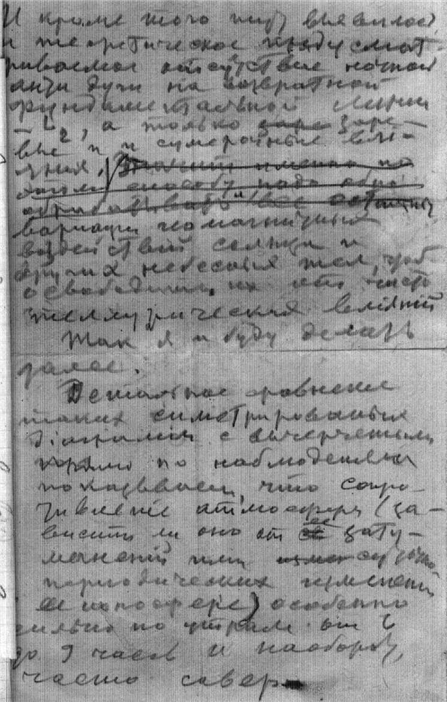 И кроме того тут выявилось
и теоретическое предусмат
риваемое отсутствие ночной
анти дуги на возвратной
фундаментальной линии
L₂, а только заре
вые и сумеречные вли-
яния.
способу надо обра
обрабатывать все
вариации геомагнитных
воздействий солнца и
других небесных тел, чтоб
освободить их от чисто
теллурических влияний
Так я и буду делать
далее.
Детальное сравнение
таких симетрированных
діаграмм с вычерчеными
прямо по наблюдениям
показывает, что сопро-
тивление атмосферы (за-
висит ли оно от ее зату-
манений или
периодических изменений
ее ионосфере) особенно
сильно по утрам от 6
до 9 часов и наоборот,
часто совер